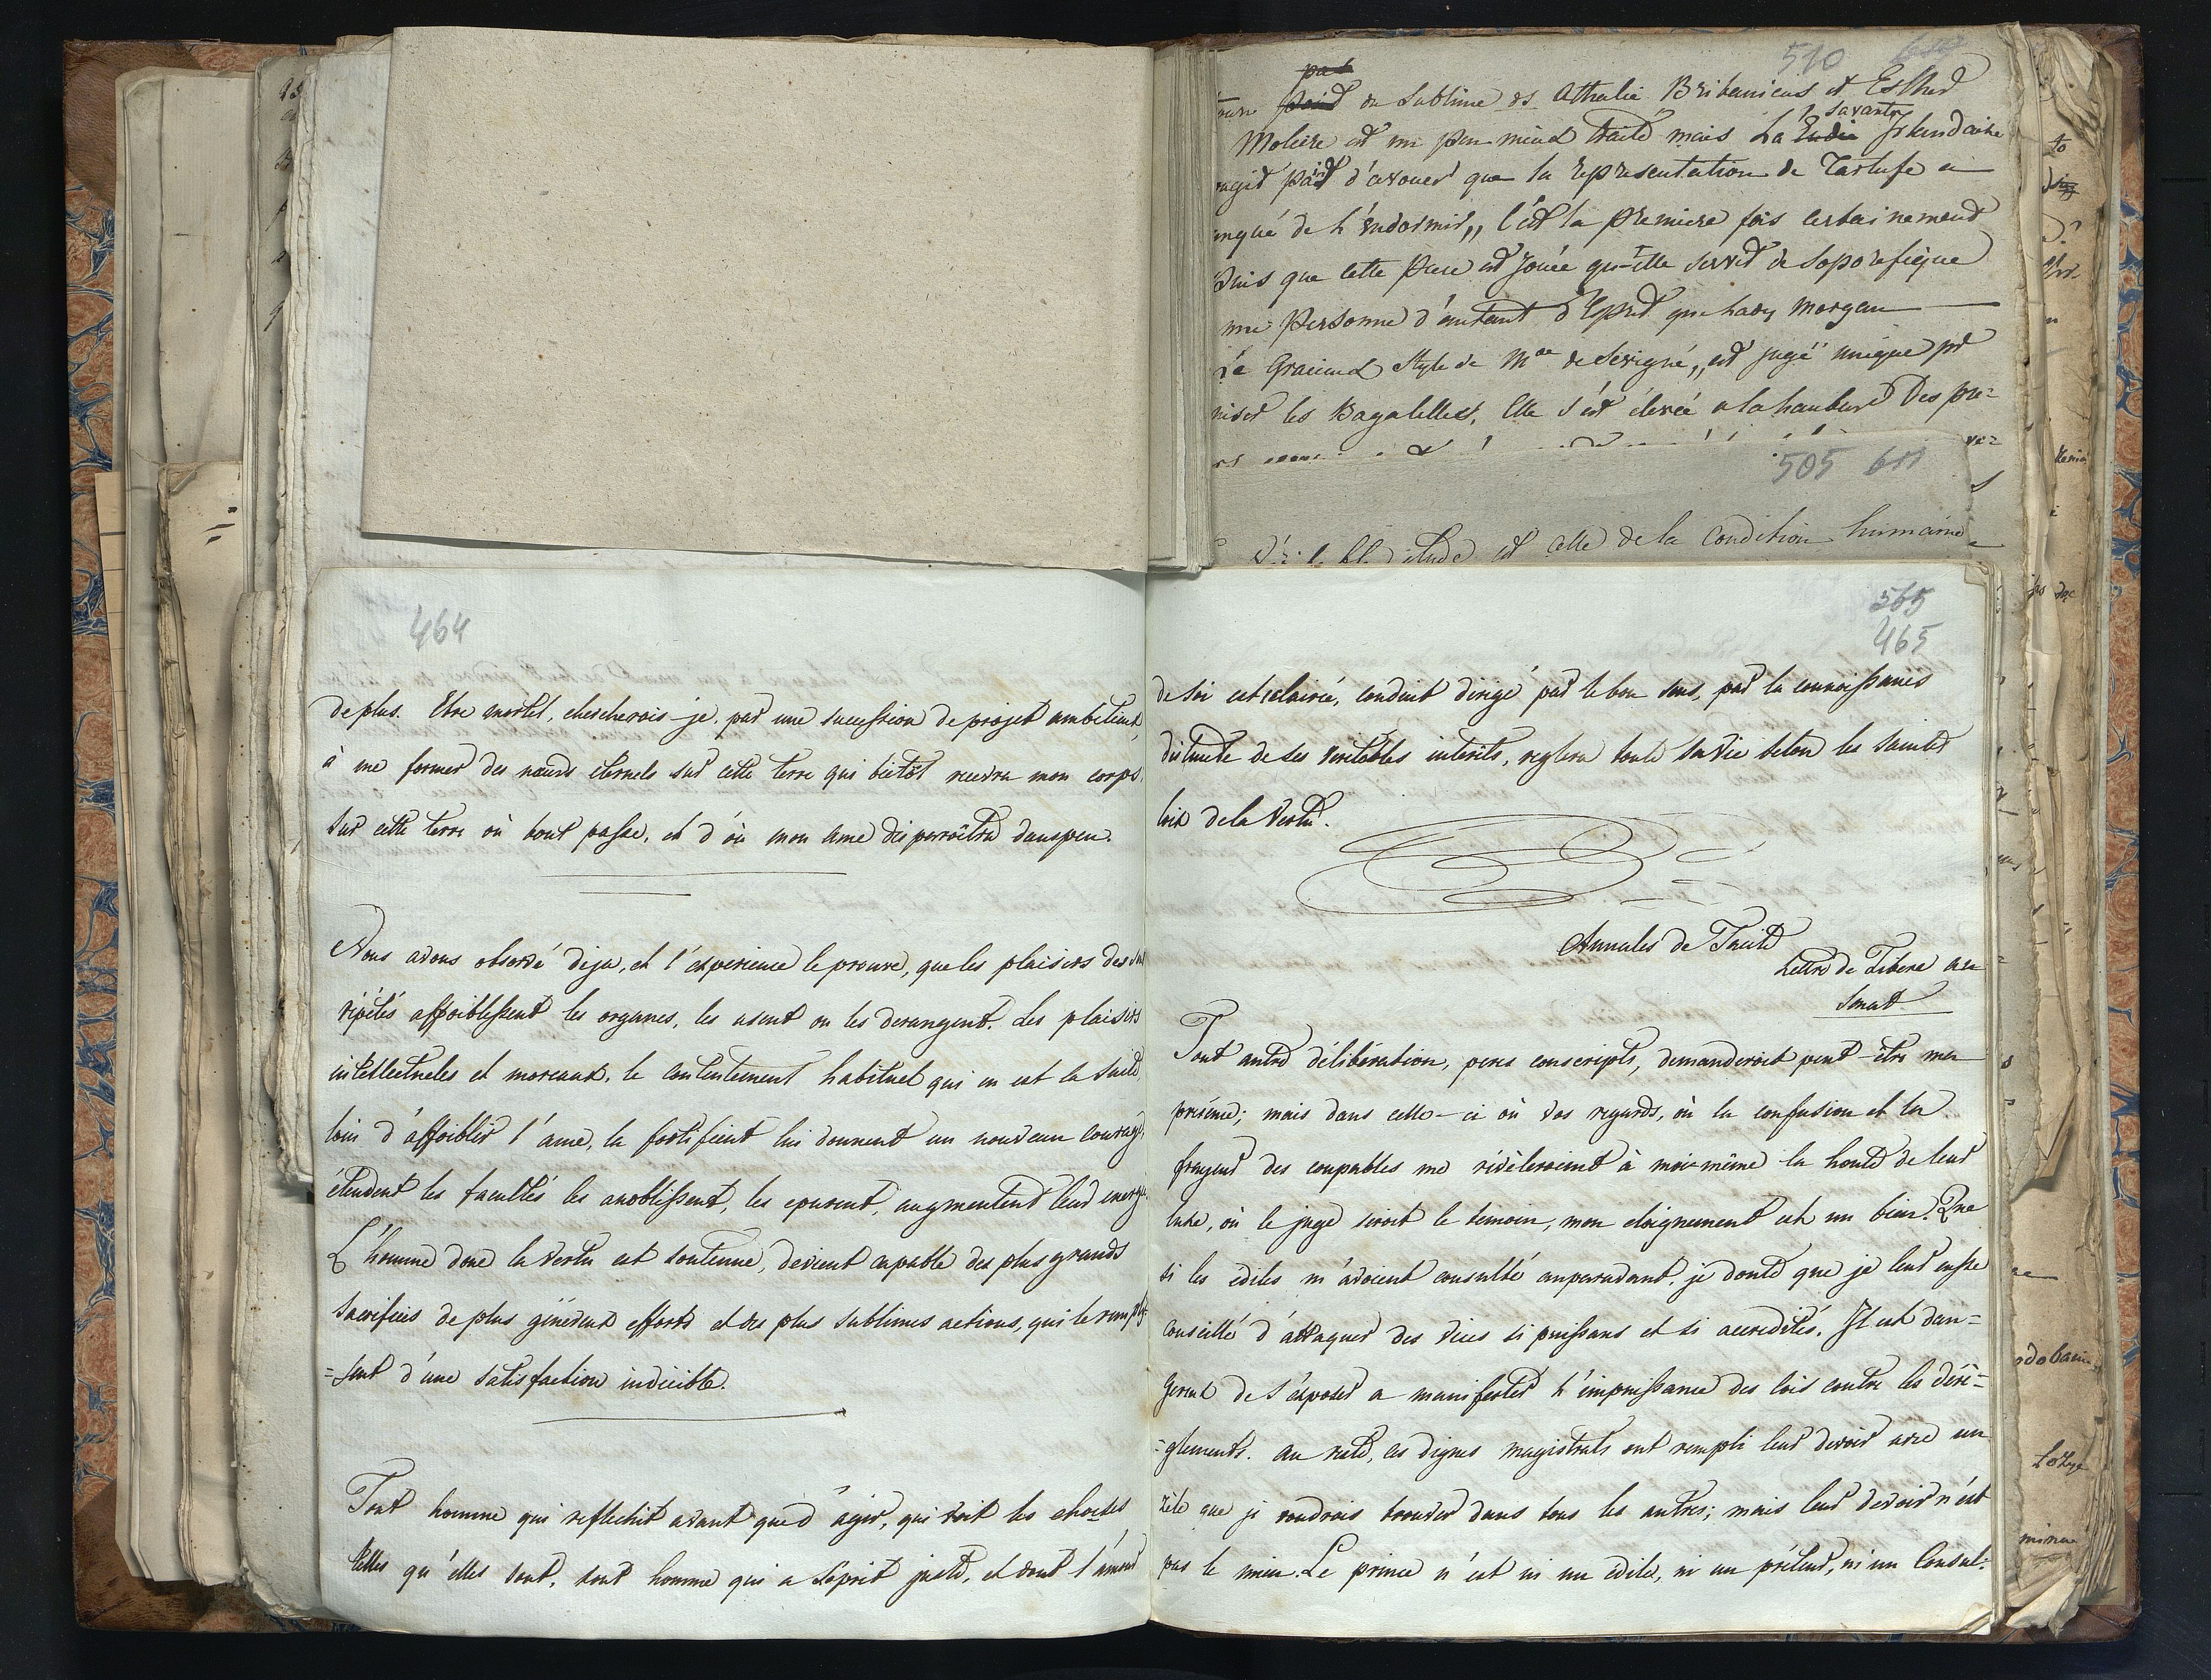 464
de plus. Etre mortel, chercherois-je, par une succession de projet ambitieux,
à me former des nœuds éternels sur cette terre qui bietôt recevra mon corps.
sur cette terre où tout passe, et d'où mon ame disparoîtra dans peu.
Nous avons observé deja, et l'experience le prouve, que les plaisirs des
répétés affoiblissent les organes, les usent ou les derangent. Les plaisirs
intellectueles et moreaux, le contentement habituel qui en est la suite,
loin d'affoiblir l'ame, la fortifient lui donnent un nouveau courage,
étendent les facultés les anoblissent, les epurent, augmentent leur energie
L'homme donc la vertu est soutenue, devient capable des plus grands
sacrifices de plus généreux efforts et des plus sublimes actions, qui le remplis-
=sent d'une satisfaction indicible.
Tout homme qui reflechit avant que d'agir, qui voit les choses
telles qu'elles sont, tout homme qui a l'esprit juste, et dont l'amour
510
par
du sublime de Athalie Britanicus et Esther
savante
Moliere est un peu mieux traité mais La Irlandaise
d'avouer que la representation de Tartufe a
anqué de l'endormir,, C'est la premiere fois certainement
puis que cette piece est jouée qu-elle servit de soporefique
une personne d'autant d'Esprit que Lady Morgan
Le Gracieux style de Mme de Sévigné,, est jugé unique pr
niser les Bagatelles, Elle s'est élevée a la hauteur Des pre=
505 611
est celle de la condition humaine
565
465
de soi est eclairée, conduit dirigé par le bon sens, par la connoissance
distincte de ses veritables interêts, reglera toute sa vie selon les saintes
loix de la Vertu.
Annales de Tacite
Lettre de Tibere au
Senat
Tout autre délibération, peres conscripts, demanderoit peut-être ma
présence; mais dans celle-ci où vos regards, où la confusion et la
frayeur des coupables me révèleroient à moi-même la honte de leur
luxe, où le juge seroit le temoin, mon éloignement est un bien. Que
si les édiles m'avoient consulté auparavant, je doute que je leur eusse
conseillé d'attaquer des vices si puissans et si accredités. Il est dan=
gereux de s'exposer a manifester l'impuissance des lois contre les déré=
=glements. au reste, ces dignes magistrats ont rempli leur devoir avec un
zèle que je voudrois trouver dans tous les autres; mais leur devoir n'est
pas le mien. Le prince n'est ni un édile, ni un préteur, ni un Consul: